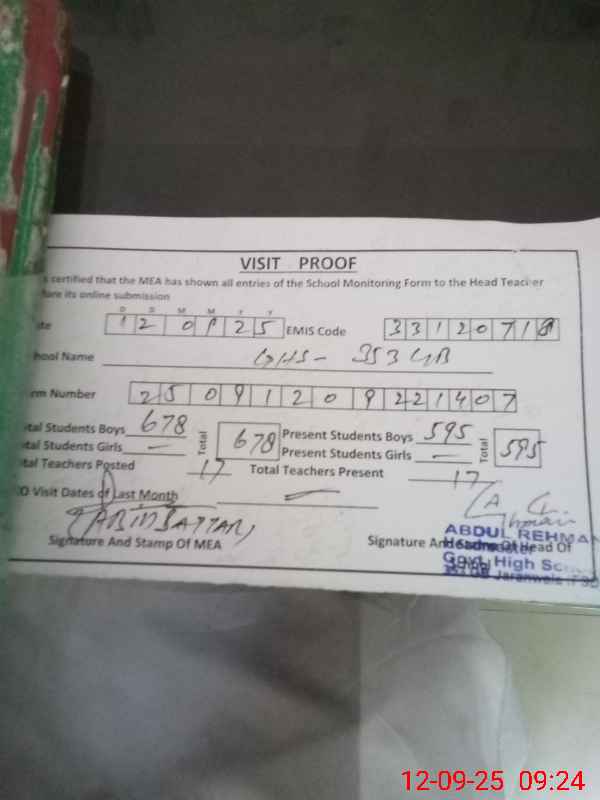 VISIT PROOF
s certified that the MEA has shown all entries of the School Monitoring Form to the Head Teacher
fore its online submission
D D M M Y Y
ate 12 09 25 EMIS Code 33120718
hool Name GHS - 353 GB
rm Number 25091209221407
tal Students Boys 678 Total 678 Present Students Boys 595 Total 595
tal Students Girls — Present Students Girls —
tal Teachers Posted 17 Total Teachers Present 17
O Visit Dates of Last Month —
Signature And Stamp Of MEA Signature And Stamp Of Head Of
ABDUL REHMA
Headmaster
Govt. High Sc
Jaranwala
12-09-25 09:24